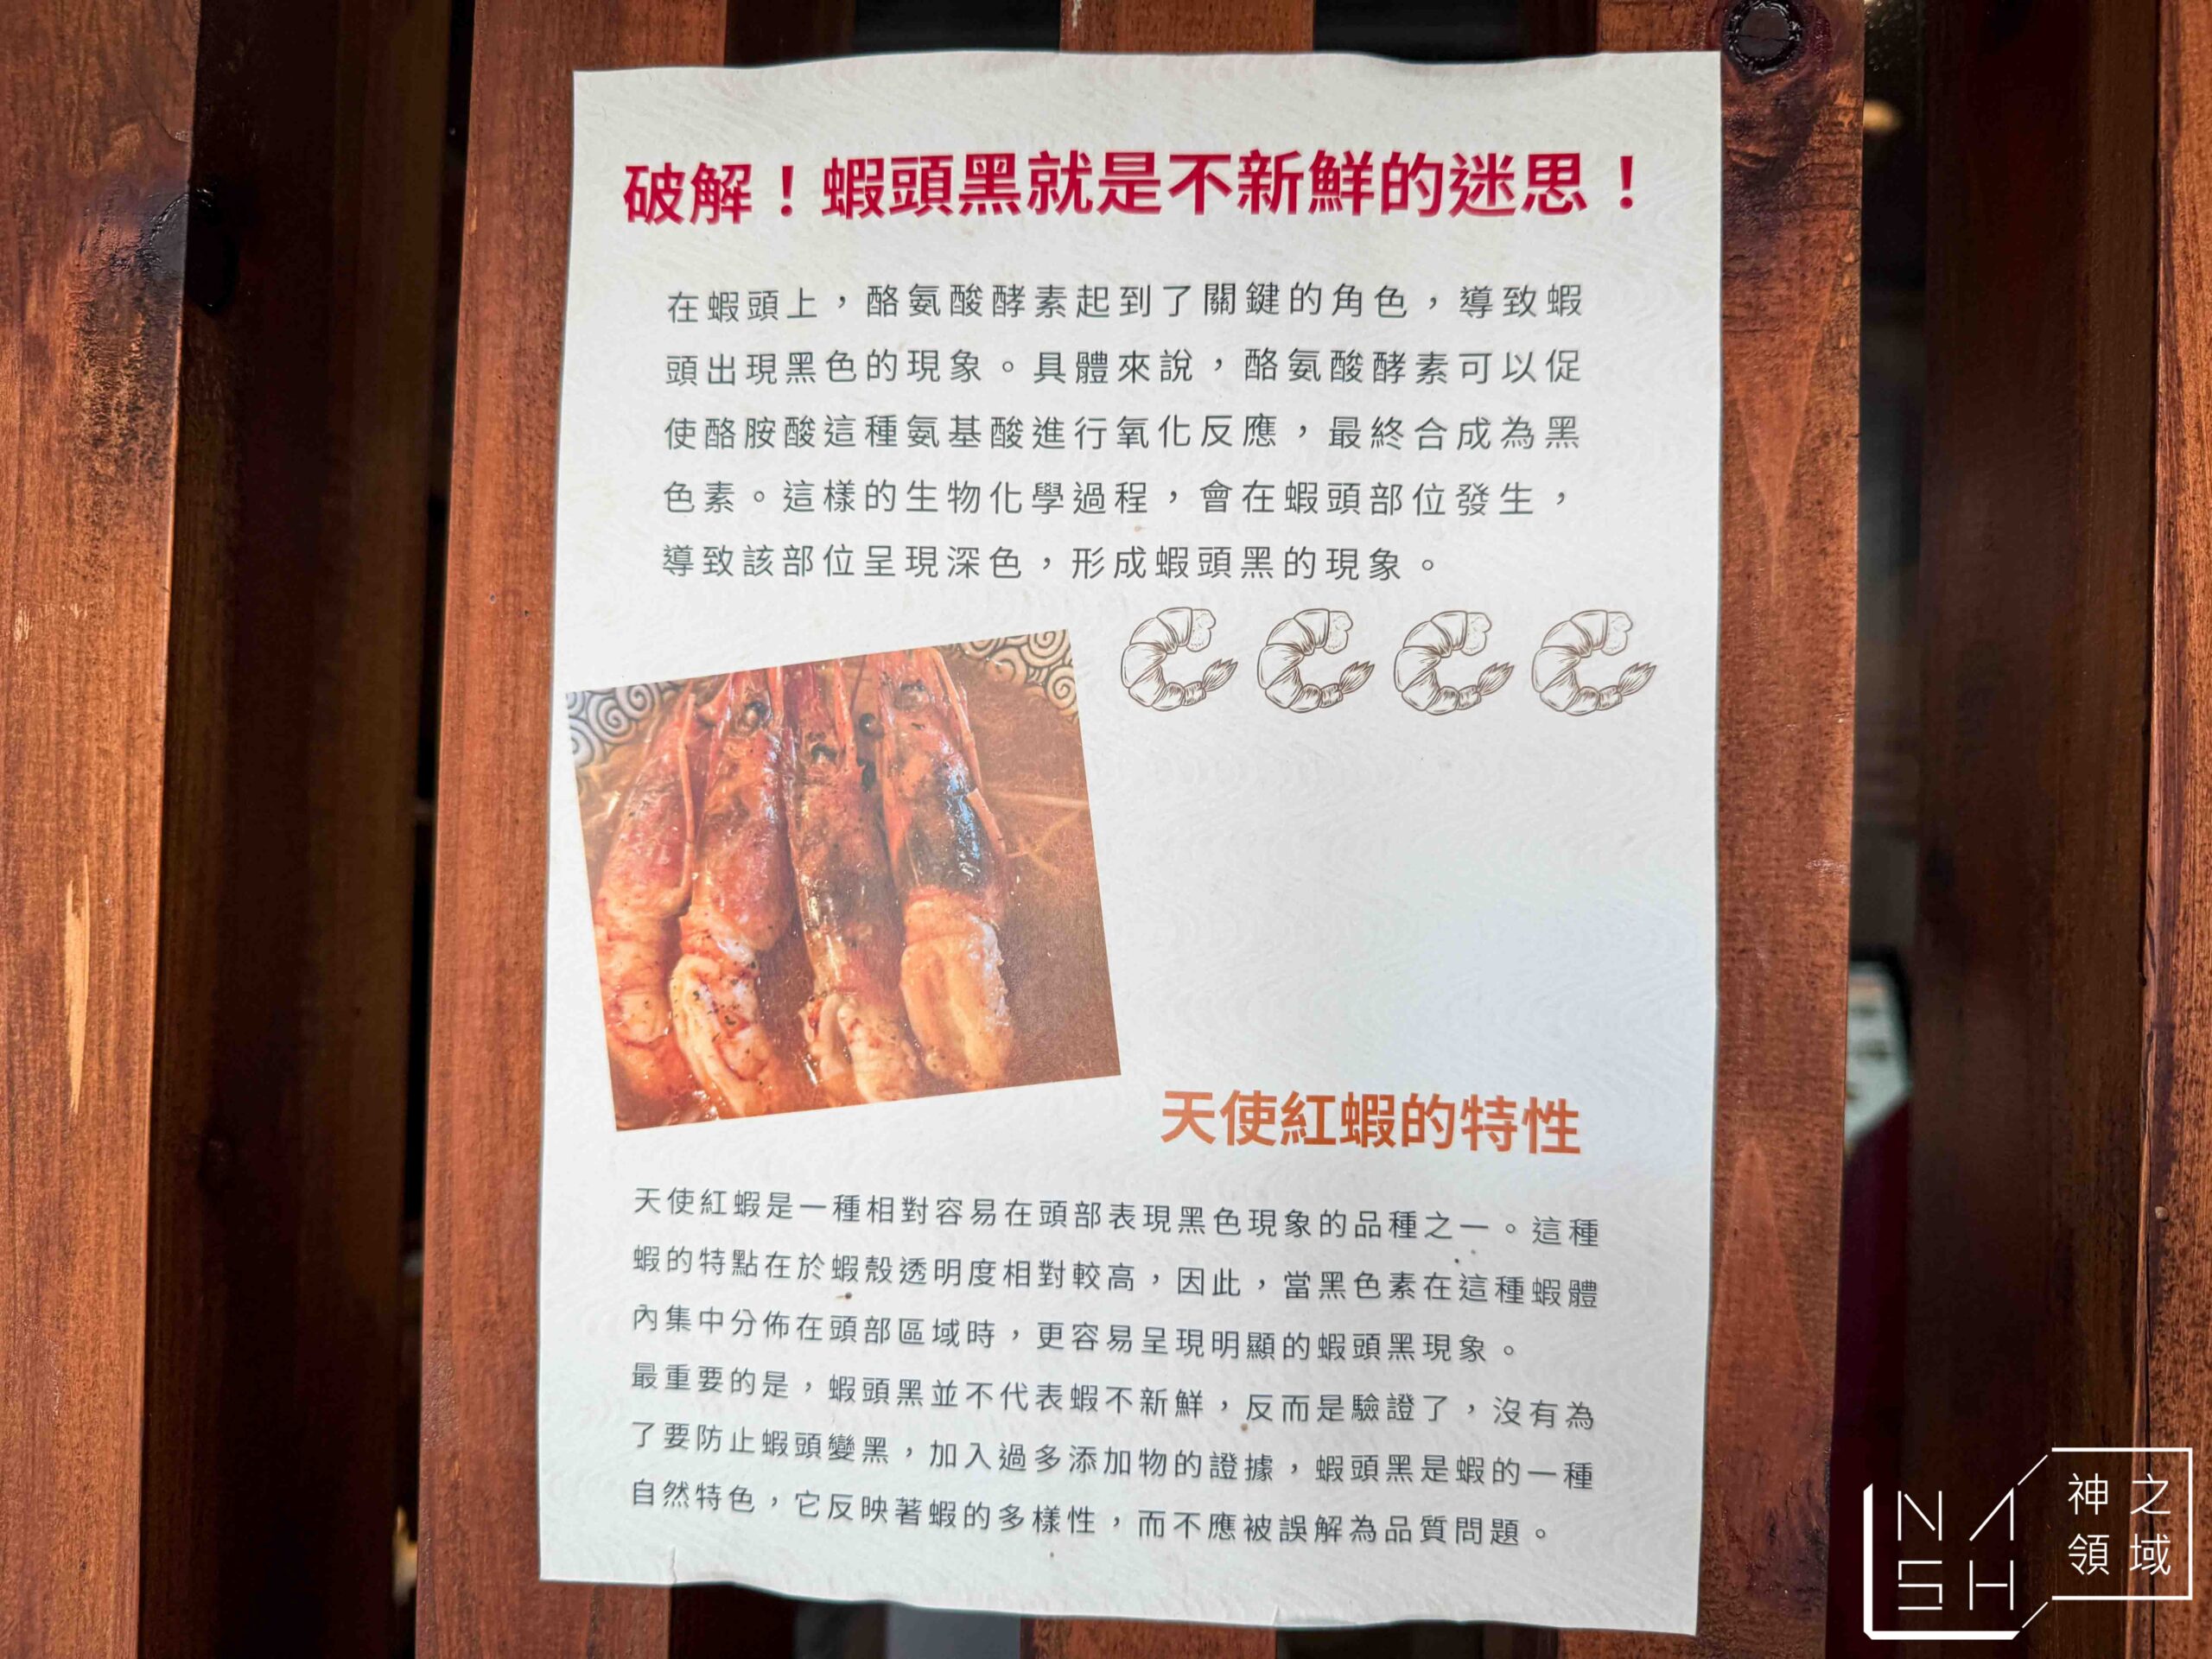 破解！蝦頭黑就是不新鮮的迷思！
在蝦頭上，酪氨酸酵素起到了關鍵的角色，導致蝦
頭出現黑色的現象。具體來說，酪氨酸酵素可以促
使酪胺酸這種氨基酸進行氧化反應，最終合成為黑
色素。這樣的生物化學過程，會在蝦頭部位發生，
導致該部位呈現深色，形成蝦頭黑的現象。
天使紅蝦的特性
天使紅蝦是一種相對容易在頭部表現黑色現象的品種之一。這種
蝦的特點在於蝦殼透明度相對較高，因此，當黑色素在這種蝦體
內集中分佈在頭部區域時，更容易呈現明顯的蝦頭黑現象。
最重要的是，蝦頭黑並不代表蝦不新鮮，反而是驗證了，沒有為
了要防止蝦頭變黑，加入過多添加物的證據，蝦頭黑是蝦的一種
自然特色，它反映著蝦的多樣性，而不應被誤解為品質問題。
NASH
神之
領域